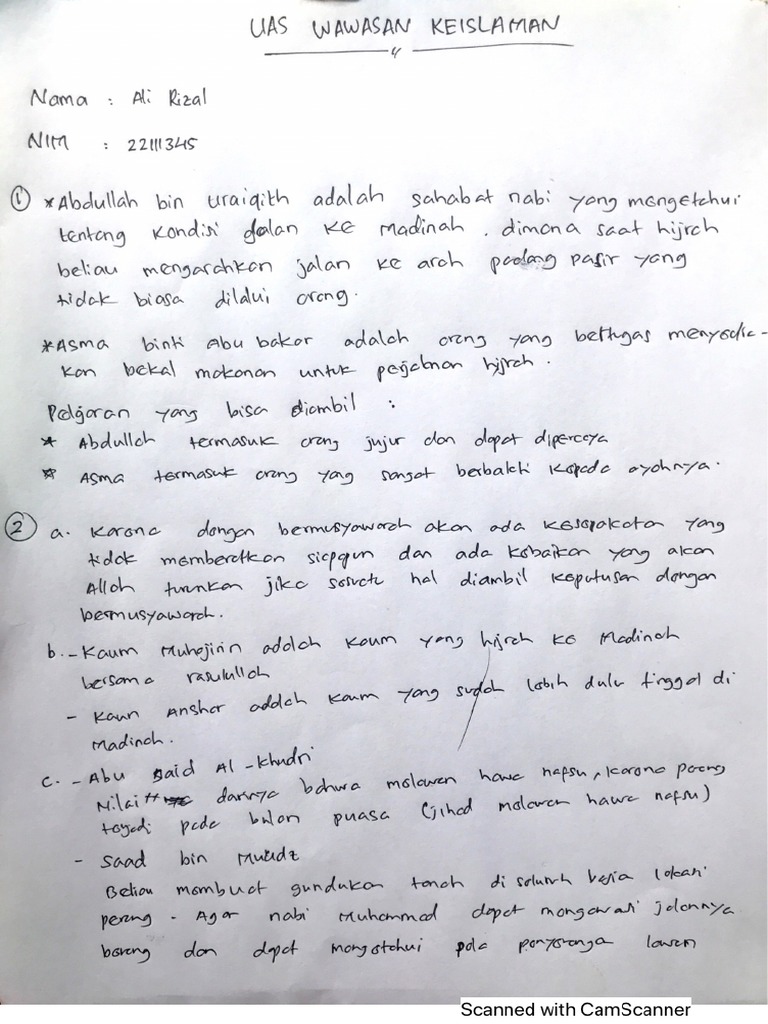 UAS WAWASAN KEISLAMAN
Nama : Ali Rizal
NIM : 22111345
① * Abdullah bin uraiqith adalah sahabat nabi yang mengetahui
tentang kondisi jalan ke Madinah . dimana saat hijrah
beliau mengarahkan jalan ke arah padang pasir yang
tidak biasa dilalui orang.
* Asma binti Abu bakar adalah orang yang bertugas menyedia-
kan bekal makanan untuk perjalanan hijrah .
Pelajaran yang bisa diambil :
* Abdullah termasuk orang jujur dan dapat dipercaya
* Asma termasuk orang yang sangat berbakti kepada ayahnya.
② a. Karena dengan bermusyawarah akan ada kesepakatan yang
tidak memberatkan siapapun dan ada kebaikan yang akan
Allah turunkan jika suatu hal diambil keputusan dengan
bermusyawarah.
b. - Kaum Muhajirin adalah kaum yang hijrah ke Madinah
bersama rasulullah
- Kaun Anshar adalah kaum yang sudah lebih dulu tinggal di
Madinah.
c. - Abu Said Al - Khudri
Nilai darinya bahwa melawan hawa nafsu, karena perang
terjadi pada bulan puasa (jihad melawan hawa nafsu)
- Saad bin Muadz
Beliau membuat gundukan tanah di seluruh lokasi
perang - Agar nabi Muhammad dapat mengawasi jalannya
perang dan dapat mengetahui pola lawan
Scanned with CamScanner